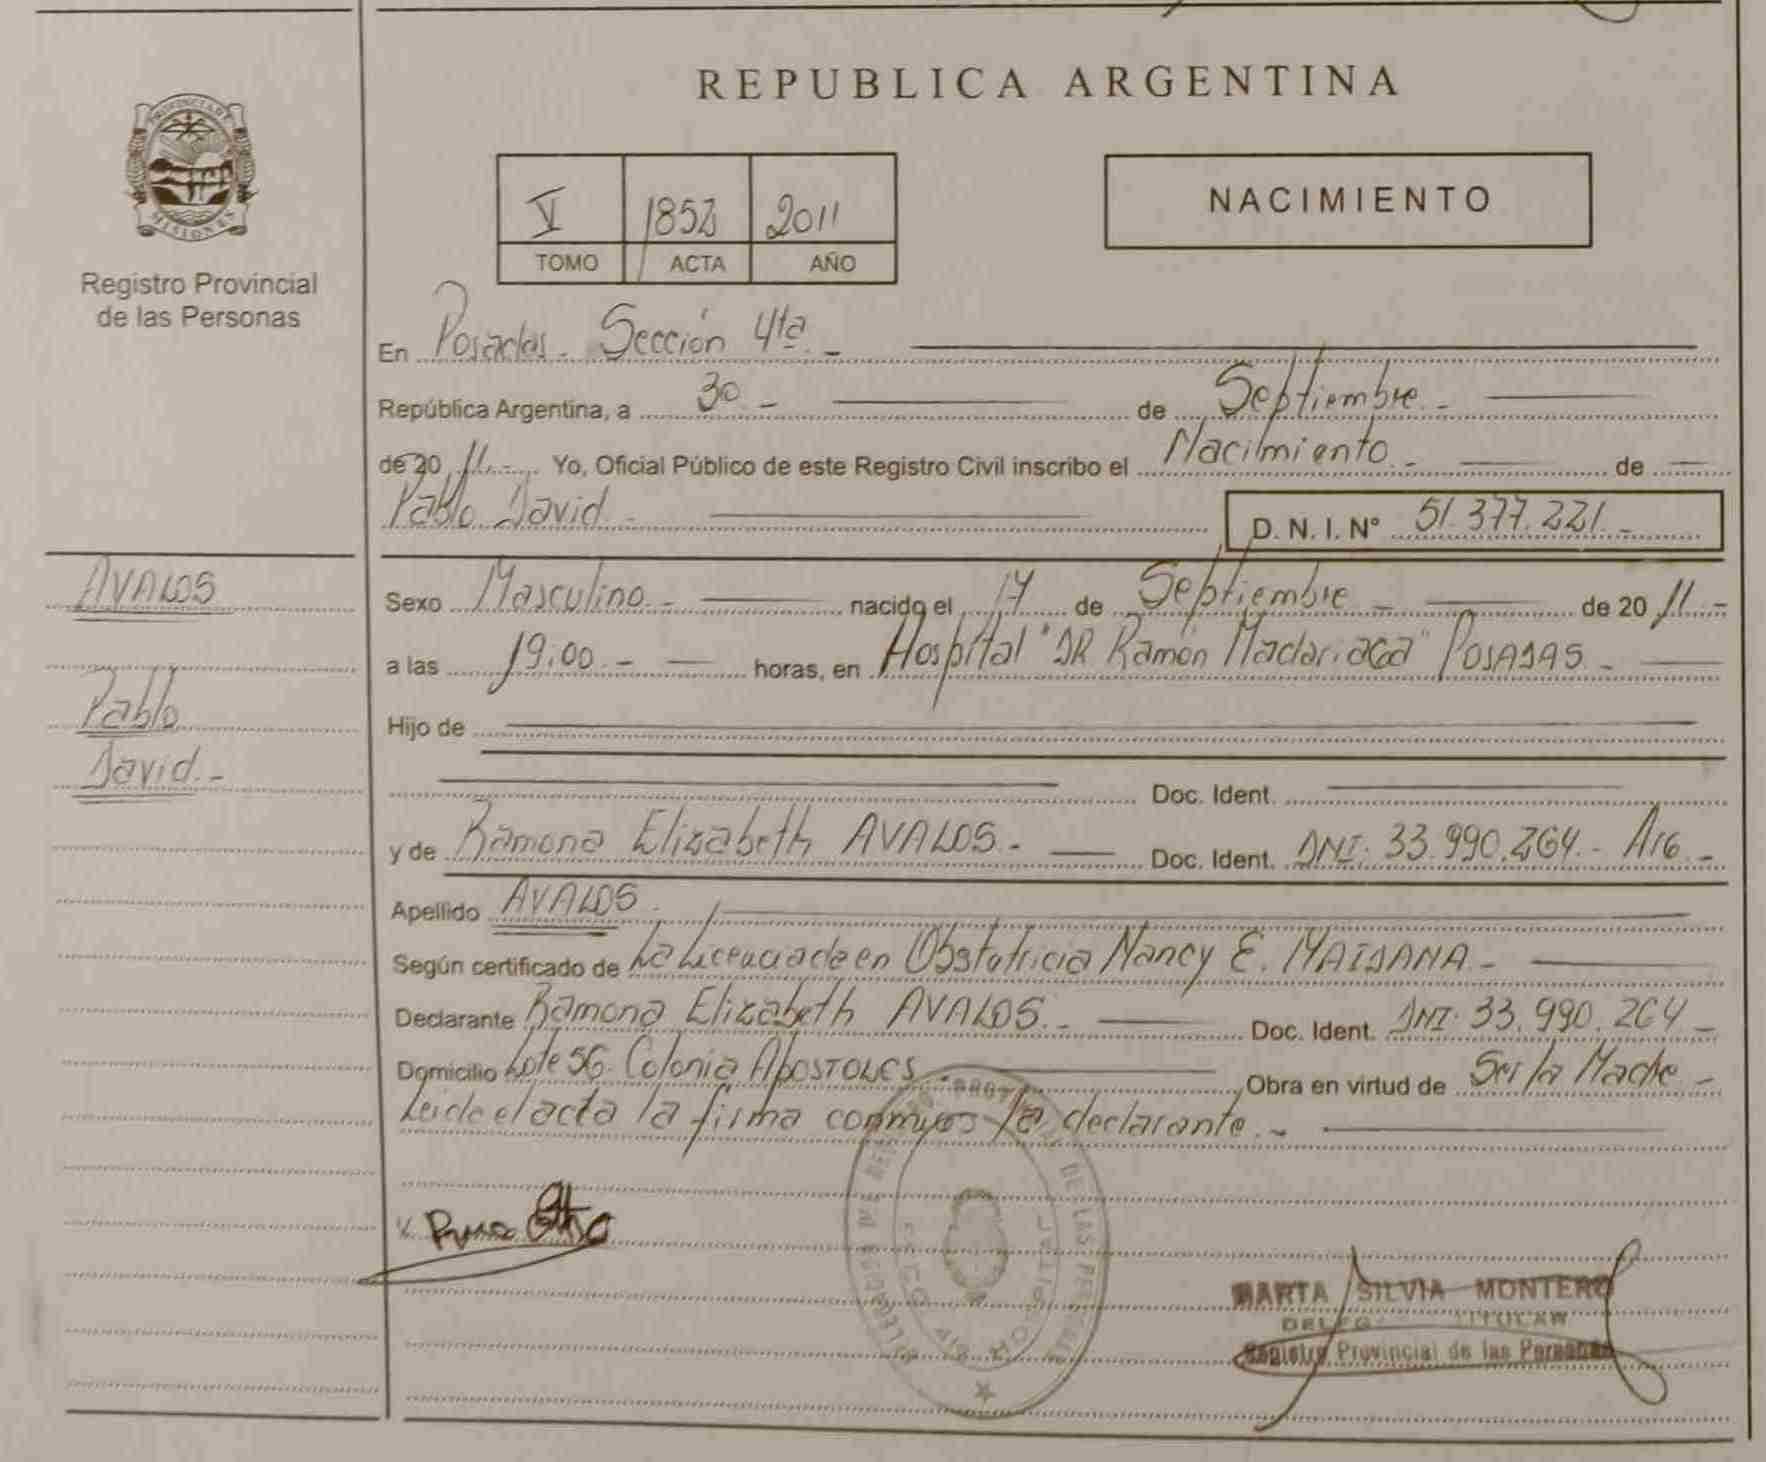 REPUBLICA ARGENTINA
PROVINCIA DE MISIONES
Registro Provincial
de las Personas
V 1852 2011
TOMO ACTA AÑO
NACIMIENTO
En Posadas - Sección 4ta. -
República Argentina, a 30 - de Septiembre. -
de 20 11. - Yo, Oficial Público de este Registro Civil inscribo el Nacimiento. - de
Pablo David. -
D. N. I. N° 51.377.221. -
AVALOS
Pablo
David. -
Sexo Masculino. - nacido el 17 de Septiembre - de 20 11 -
a las 19.00. - horas, en Hospital "DR Ramón Madariaga" POSADAS. -
Hijo de
Doc. Ident.
y de Ramona Elizabeth AVALOS. - Doc. Ident. DNI. 33.990.264. - Arg. -
Apellido AVALOS.
Según certificado de La Licenciada en Obstetricia Nancy E. MAIDANA. -
Declarante Ramona Elizabeth AVALOS. - Doc. Ident. DNI. 33.990.264 -
Domicilio Lote 56. Colonia APOSTOLES. - Obra en virtud de Ser la Madre -
Leida el acta la firma conmigo la declarante. -
MARTA SILVIA MONTERO
Registro Provincial de las Personas